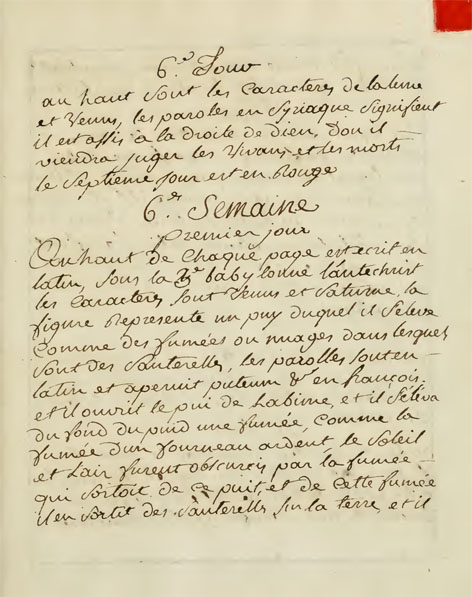 6.e Jour
au haut sont les Caracteres de la lune
et Venus, les paroles en Syriaque signifient
il est assis a la droite de dieu, d'ou il —
viendra juger les Vivans, et les morts
le Septieme jour est en Rouge
6.e Semaine
premier jour
En haut de chaque page est ecrit en
latin, sous la babylonne l'antechrist
les caracteres sont Venus et Saturne, la
figure Represente un puy duquel il S'eleve
Comme des fumées ou nuages dans lesquels
sont des Sauterelles, les parolles sont en —
latin et aperuit puteum &c en françois,
et il ouvrit le pui de Labime, et il S'éleva
du fond du puid une fumée, Comme la
fumée d'un fourneau ardent, le Soleil
et Lair furent obscurcis par la fumée —
qui sortoit de ce puit, et de cette fumée
il en sortit des Sauterelles sur la terre, et il